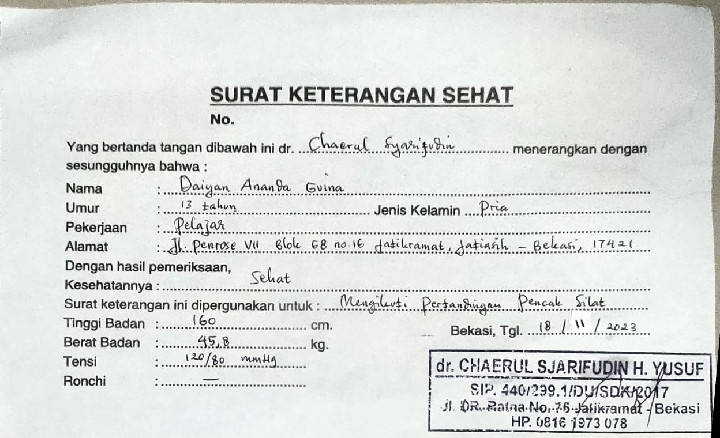 SURAT KETERANGAN SEHAT
No.
Yang bertanda tangan dibawah ini dr. Chaerul Syarifudin menerangkan dengan
sesungguhnya bahwa :
Nama : Daiyan Ananda Guina
Umur : 13 tahun Jenis Kelamin Pria
Pekerjaan : Pelajar
Alamat : Jl. Penrose VII Blok GB no.16 Jatikramat, Jatiasih - Bekasi, 17421
Dengan hasil pemeriksaan,
Kesehatannya : Sehat
Surat keterangan ini dipergunakan untuk : Mengikuti Pertandingan Pencak Silat
Tinggi Badan : 160 cm. Bekasi, Tgl. 18 / 11 / 2023
Berat Badan : 45,8 kg.
Tensi : 120/80 mmHg
Ronchi : —
dr. CHAERUL SJARIFUDIN H. YUSUF
SIP. 440/299.1/DU/SDK/2017
Jl. DR. Ratna No. 76 Jatikramat - Bekasi
HP. 0816 1973 078